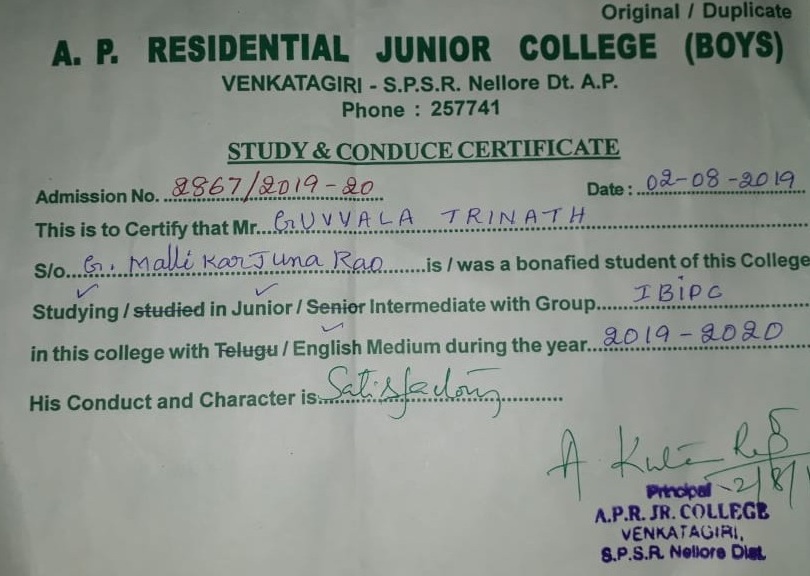 Original / Duplicate
A. P. RESIDENTIAL JUNIOR COLLEGE (BOYS)
VENKATAGIRI - S.P.S.R. Nellore Dt. A.P.
Phone : 257741
STUDY & CONDUCE CERTIFICATE
Admission No. 2867/2019-20 Date : 02-08-2019
This is to Certify that Mr. GUVVALA TRINATH
S/o. G. Malli Karjuna Rao is / was a bonafied student of this College
Studying / studied in Junior / Senior Intermediate with Group IBiPC
in this college with Telugu / English Medium during the year 2019-2020
His Conduct and Character is Satisfactory
A
Principal
A.P.R. JR. COLLEGE
VENKATAGIRI,
S.P.S.R. Nellore Dist.